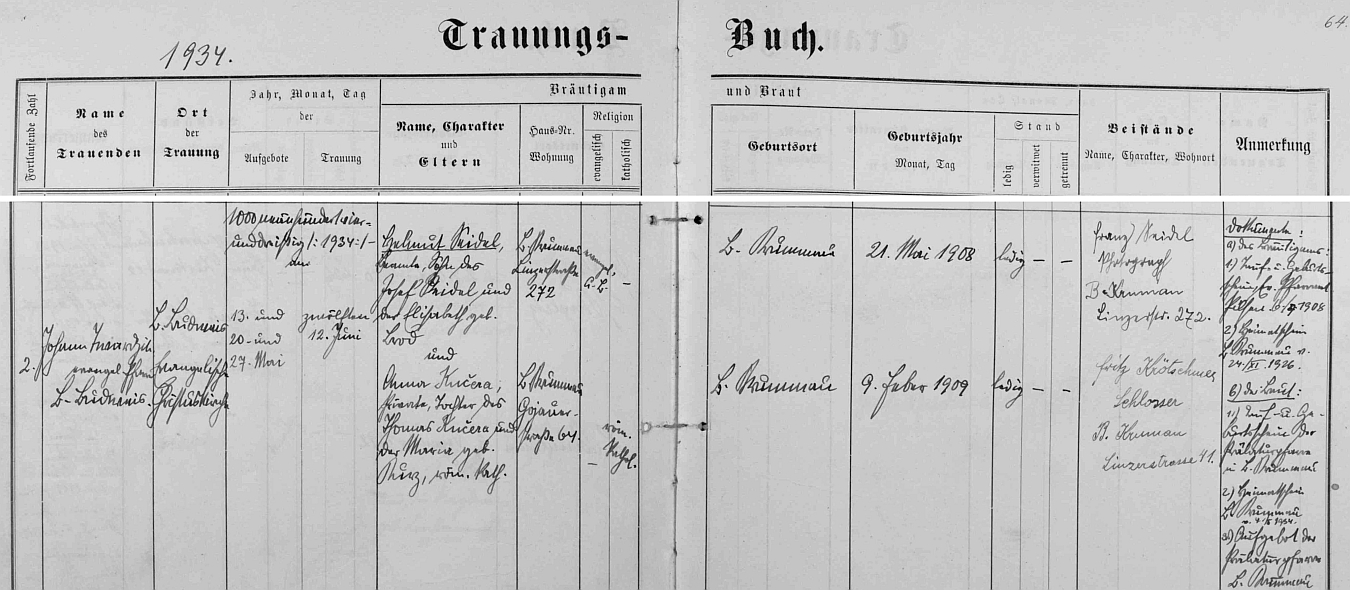 64.
1934.
Trauungs-Buch.
Fortlaufende Zahl
Name
des
Trauenden
Ort
der
Trauung
Jahr, Monat, Tag
der
Aufgebote
Trauung
Bräutigam
Name, Charakter
und
Eltern
Haus-Nr.
Wohnung
Religion
evangelisch
katholisch
und Braut
Geburtsort
Geburtsjahr
Monat, Tag
Stand
ledig
verwitwet
getrennt
Beistände
Name, Charakter, Wohnort
Anmerkung
2.
Johann
evangel.
B.-Budweis.
B. Budweis
Evangelische
Christuskirche
1000 neunhundertvier-
unddreißig /: 1934 :/-
am
13. und
20. und
27. Mai
zwölften
12. Juni
Helmut Seidel,
Beamte, Sohn des
Josef Seidel und
der Elisabeth geb.
Brod
und
Anna Kučera,
Private, Tochter des
Thomas Kučera und
der Maria, geb.
Kurz, röm. kath.
B. Krummau
Linzerstraße
272
B. Krummau
Gojauer-
straße 64.
evangl.
A. B.
–
–
röm.
kathol.
B. Krummau
21. Mai 1908
ledig – –
B. Krummau
9. Feber 1909
ledig – –
Franz Seidel
Photograph
B. Krumau
Linzerstr. 272.
Fritz Krötschmer
Schlosser
B. Krumau
Linzerstrasse 41.
Dokumente:
a) des Bräutigams:
1) Tauf- u. Geburts-
schein, ev. Pfarramt
Pilsen 1908
2) Heimatschein
B. Krummau v.
24./XI. 1926.
b) der Braut:
1) Tauf- u. Ge-
burtsschein der
Prälaturpfarre
in B. Krummau
2) Heimatschein
B. Krummau
1934.
3) Aufgebot der
Prälaturpfarre
B. Krummau